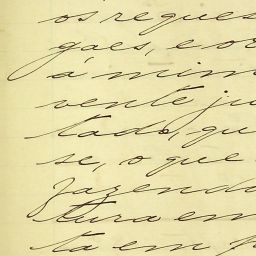 os reques
gaes, e or
á mim
vente ju
tado, qu
se, o que
fazendo
tura em
ta em p